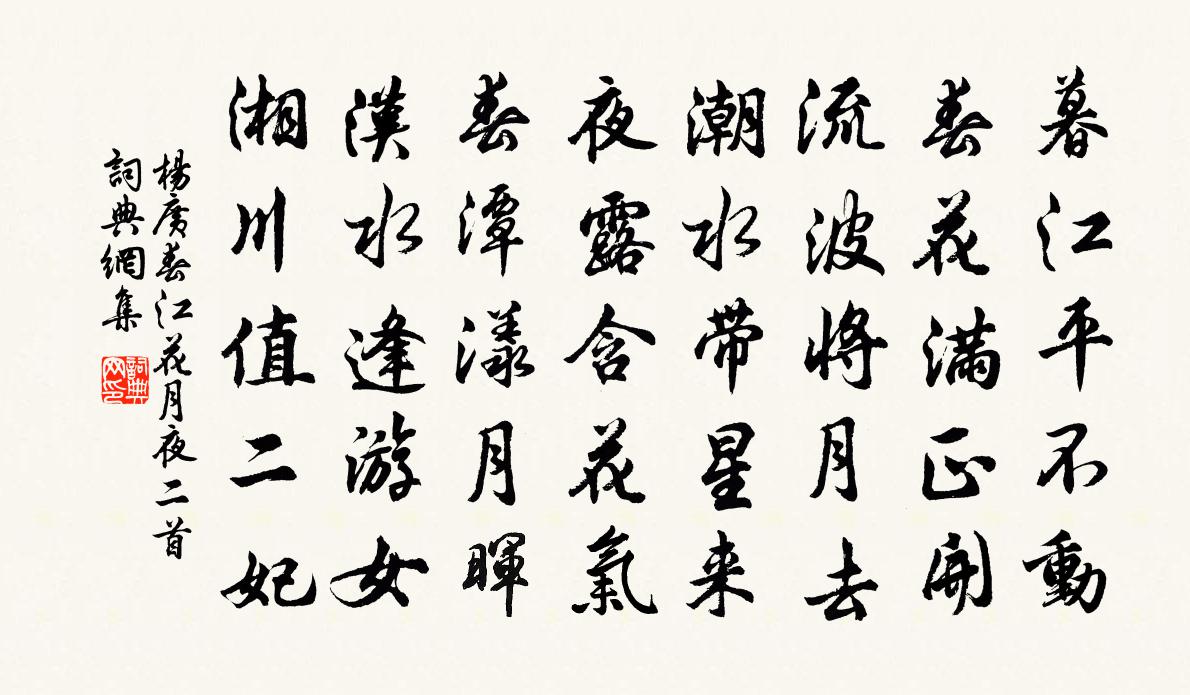 暮江平不動
春花滿正開
流波將月去
潮水帶星来
夜露含花氣
春潭漾月暉
漢水逢游女
湘川值二妃
楊廣春江花月夜二首
詞典網集
詞典
网印